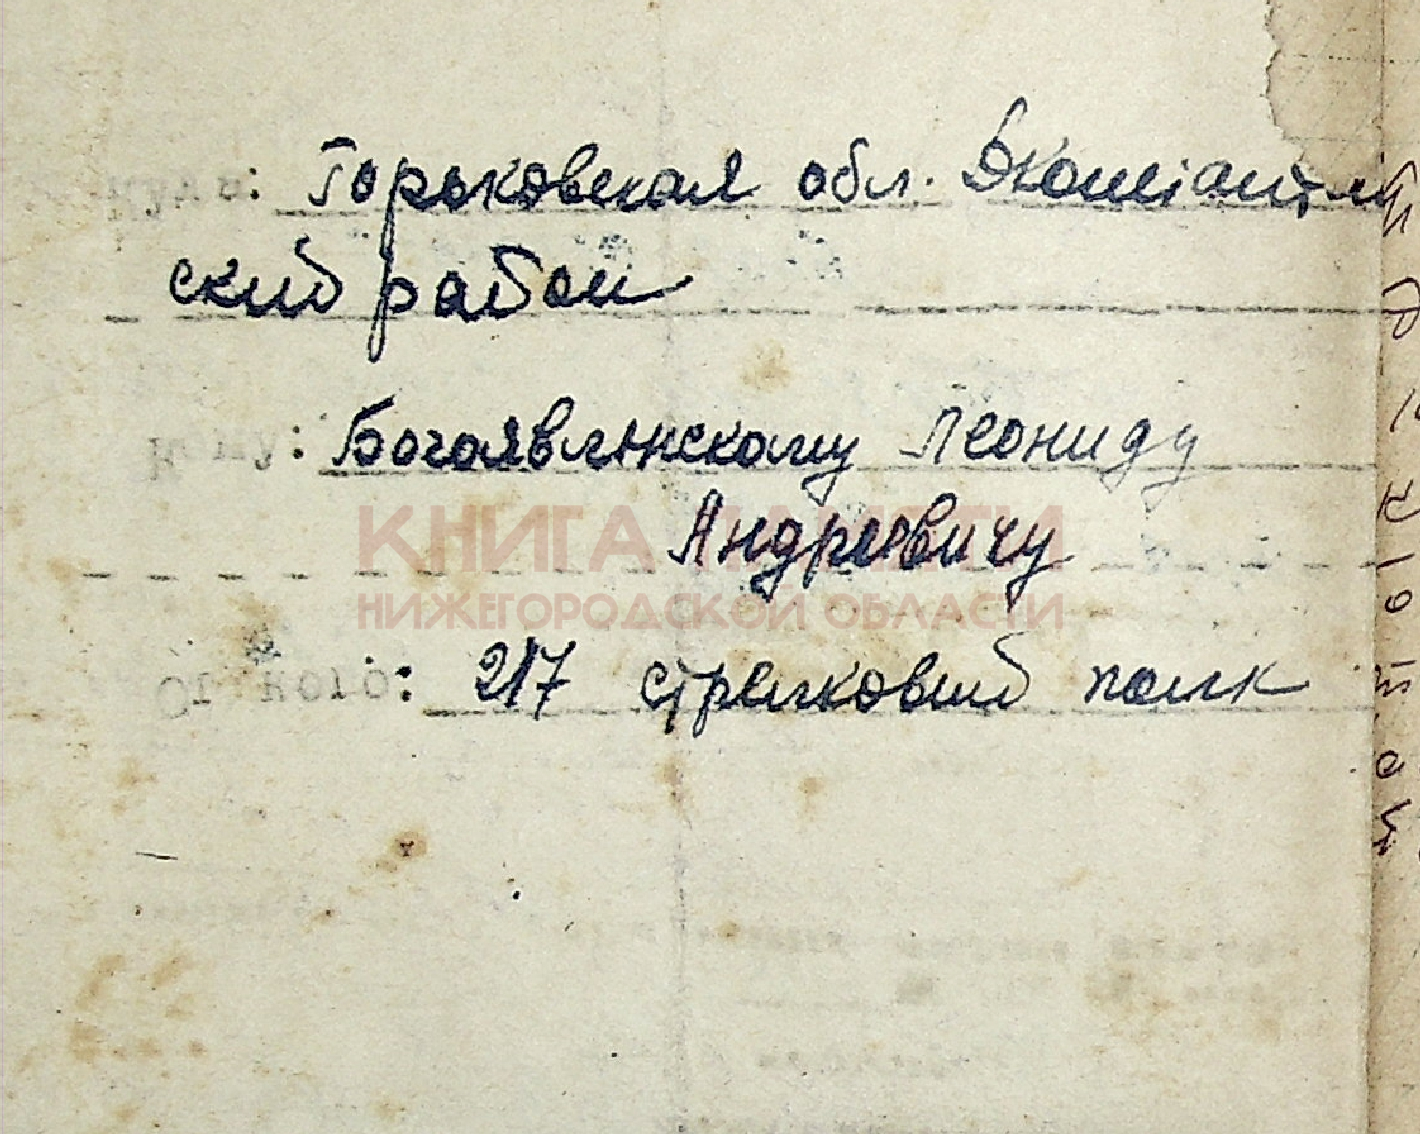 Куда: Горьковская обл. Дконстантин
ский район
Кому: Богоявленскому Леониду
Андреевичу
КНИГА ПАМЯТИ
НИЖЕГОРОДСКОЙ ОБЛАСТИ
От кого: 217 стрелковый полк